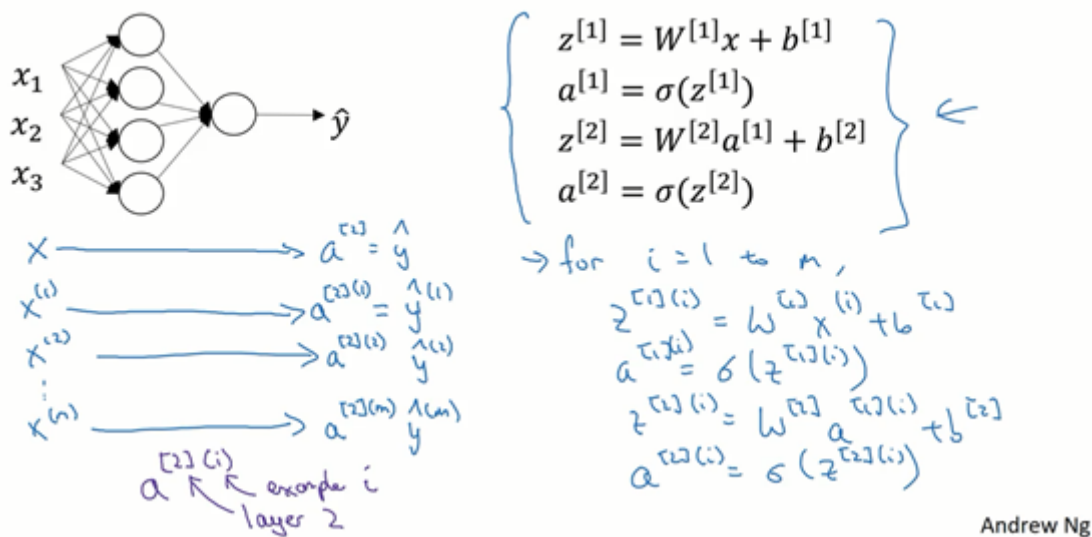 x₁
x₂
x₃
ŷ
z^[1] = W^[1]x + b^[1]
a^[1] = σ(z^[1])
z^[2] = W^[2]a^[1] + b^[2]
a^[2] = σ(z^[2])
x → a^[2] = ŷ
x^(1) → a^[2](1) = ŷ^(1)
x^(2) → a^[2](2) ŷ^(2)
⋮
x^(m) → a^[2](m) ŷ^(m)
a^[2](i)
example i
layer 2
→ for i = 1 to m,
z^[1](i) = W^[1] x^(i) + b^[1]
a^[1](i) = σ(z^[1](i))
z^[2](i) = W^[2] a^[1](i) + b^[2]
a^[2](i) = σ(z^[2](i))
Andrew Ng